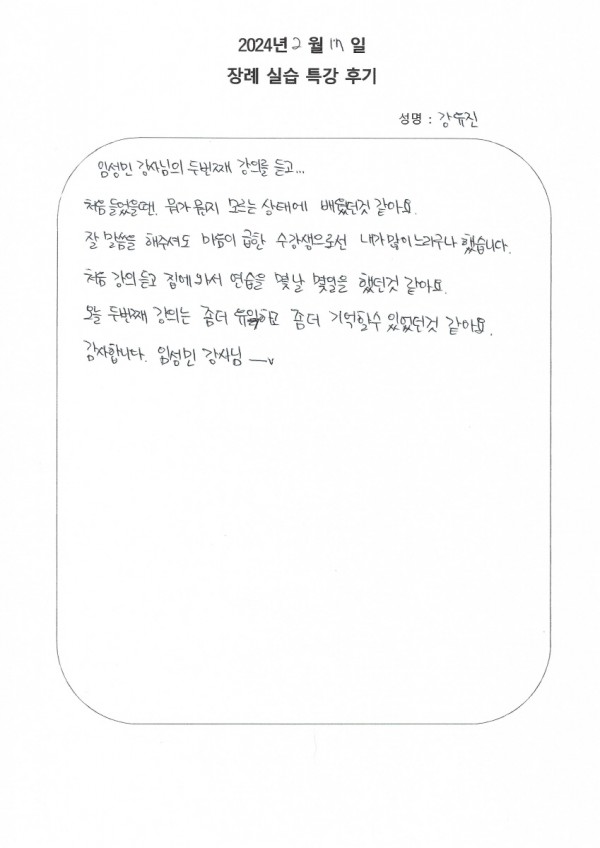 2024년 2 월 17 일
장례 실습 특강 후기
성명 : 강유진
임성민 강사님의 두번째 강의를 듣고...
처음 들었을땐. 뭐가 뭔지 모르는 상태에 배웠던것 같아요.
잘 말씀을 해주셔도 마음이 급한 수강생으로선 내가 많이 느리구나 했습니다.
처음 강의 듣고 집에와서 연습을 몇날 몇일을 했던것 같아요.
오늘 두번째 강의는 좀더 유익하고 좀더 기억할수 있었던것 같아요.
감사합니다. 임성민 강사님